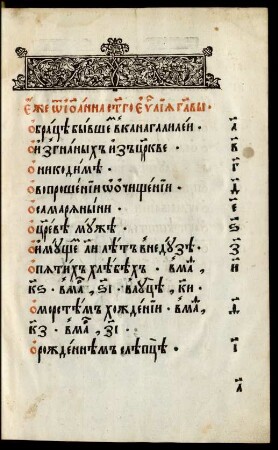 Е҆же ѿ іѡанна ст҃го еѵⷢ҇лїѧ главы ·
О бра́цѣ бы́вшеⷨ в кана галилеи · а҃
О и҆згна́ныхъ и҆зъ цр҃кве · в҃
О никоди́мѣ · г҃
О вопроше́нїи ѡ҆ ѡ҆чище́нїи · д҃
О самарѧны́ни · е҃
О цр҃евѣ мꙋ́жѣ · ѕ҃
О и҆мꙋ́щеⷨ л҃и лѣ́тъ в недꙋ́зѣ · з҃
О пѧти́хъ хлѣ́бѣхъ · в маⷴ҇ , и҃
к҃ѕ · в маⷬ҇ , ѕ҃і · в лꙋцѣ , к҃и ·
О морстѣ́мъ хожде́нїи · в маⷴ҇ , ѳ҃
к҃з · в маⷬ҇ , з҃і ·
О рожде́ннѣмъ слѣпцѣ · і҃
а҃